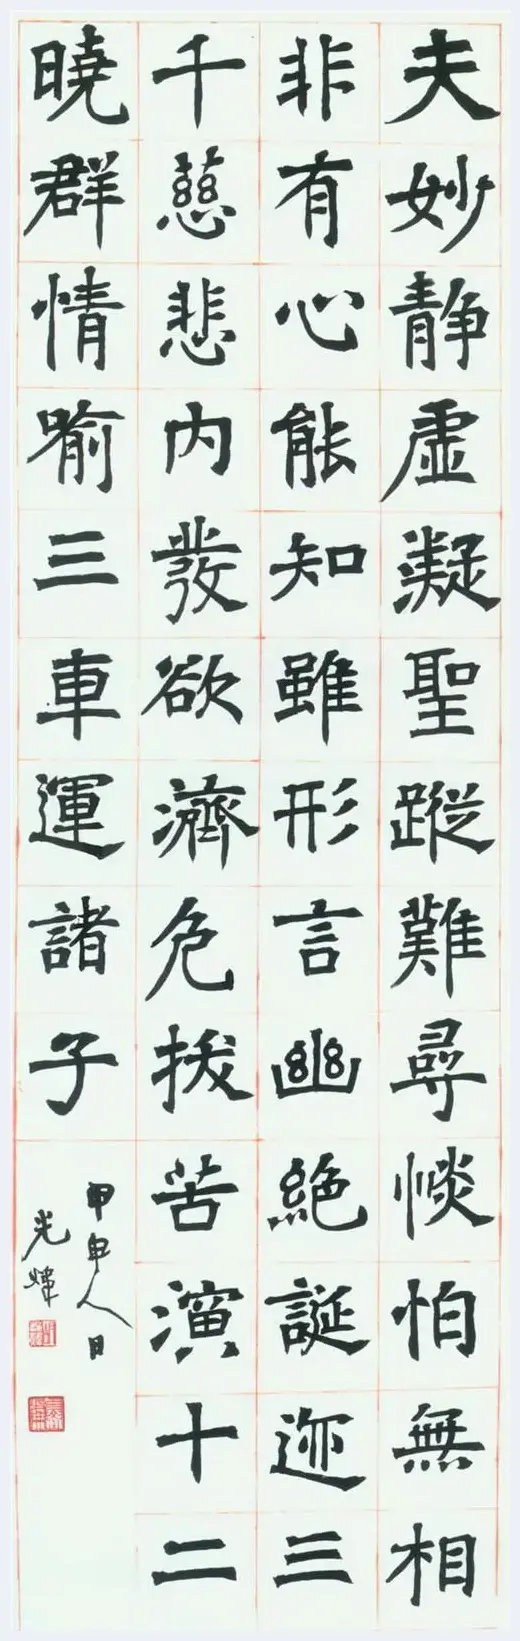 夫妙静虚凝聖蹤難尋惔怕無相
非有心能知雖形言幽絶誕迹三
千慈悲内發欲濟危拔苦演十二
曉群情喻三車運諸子
甲申人日
光煒